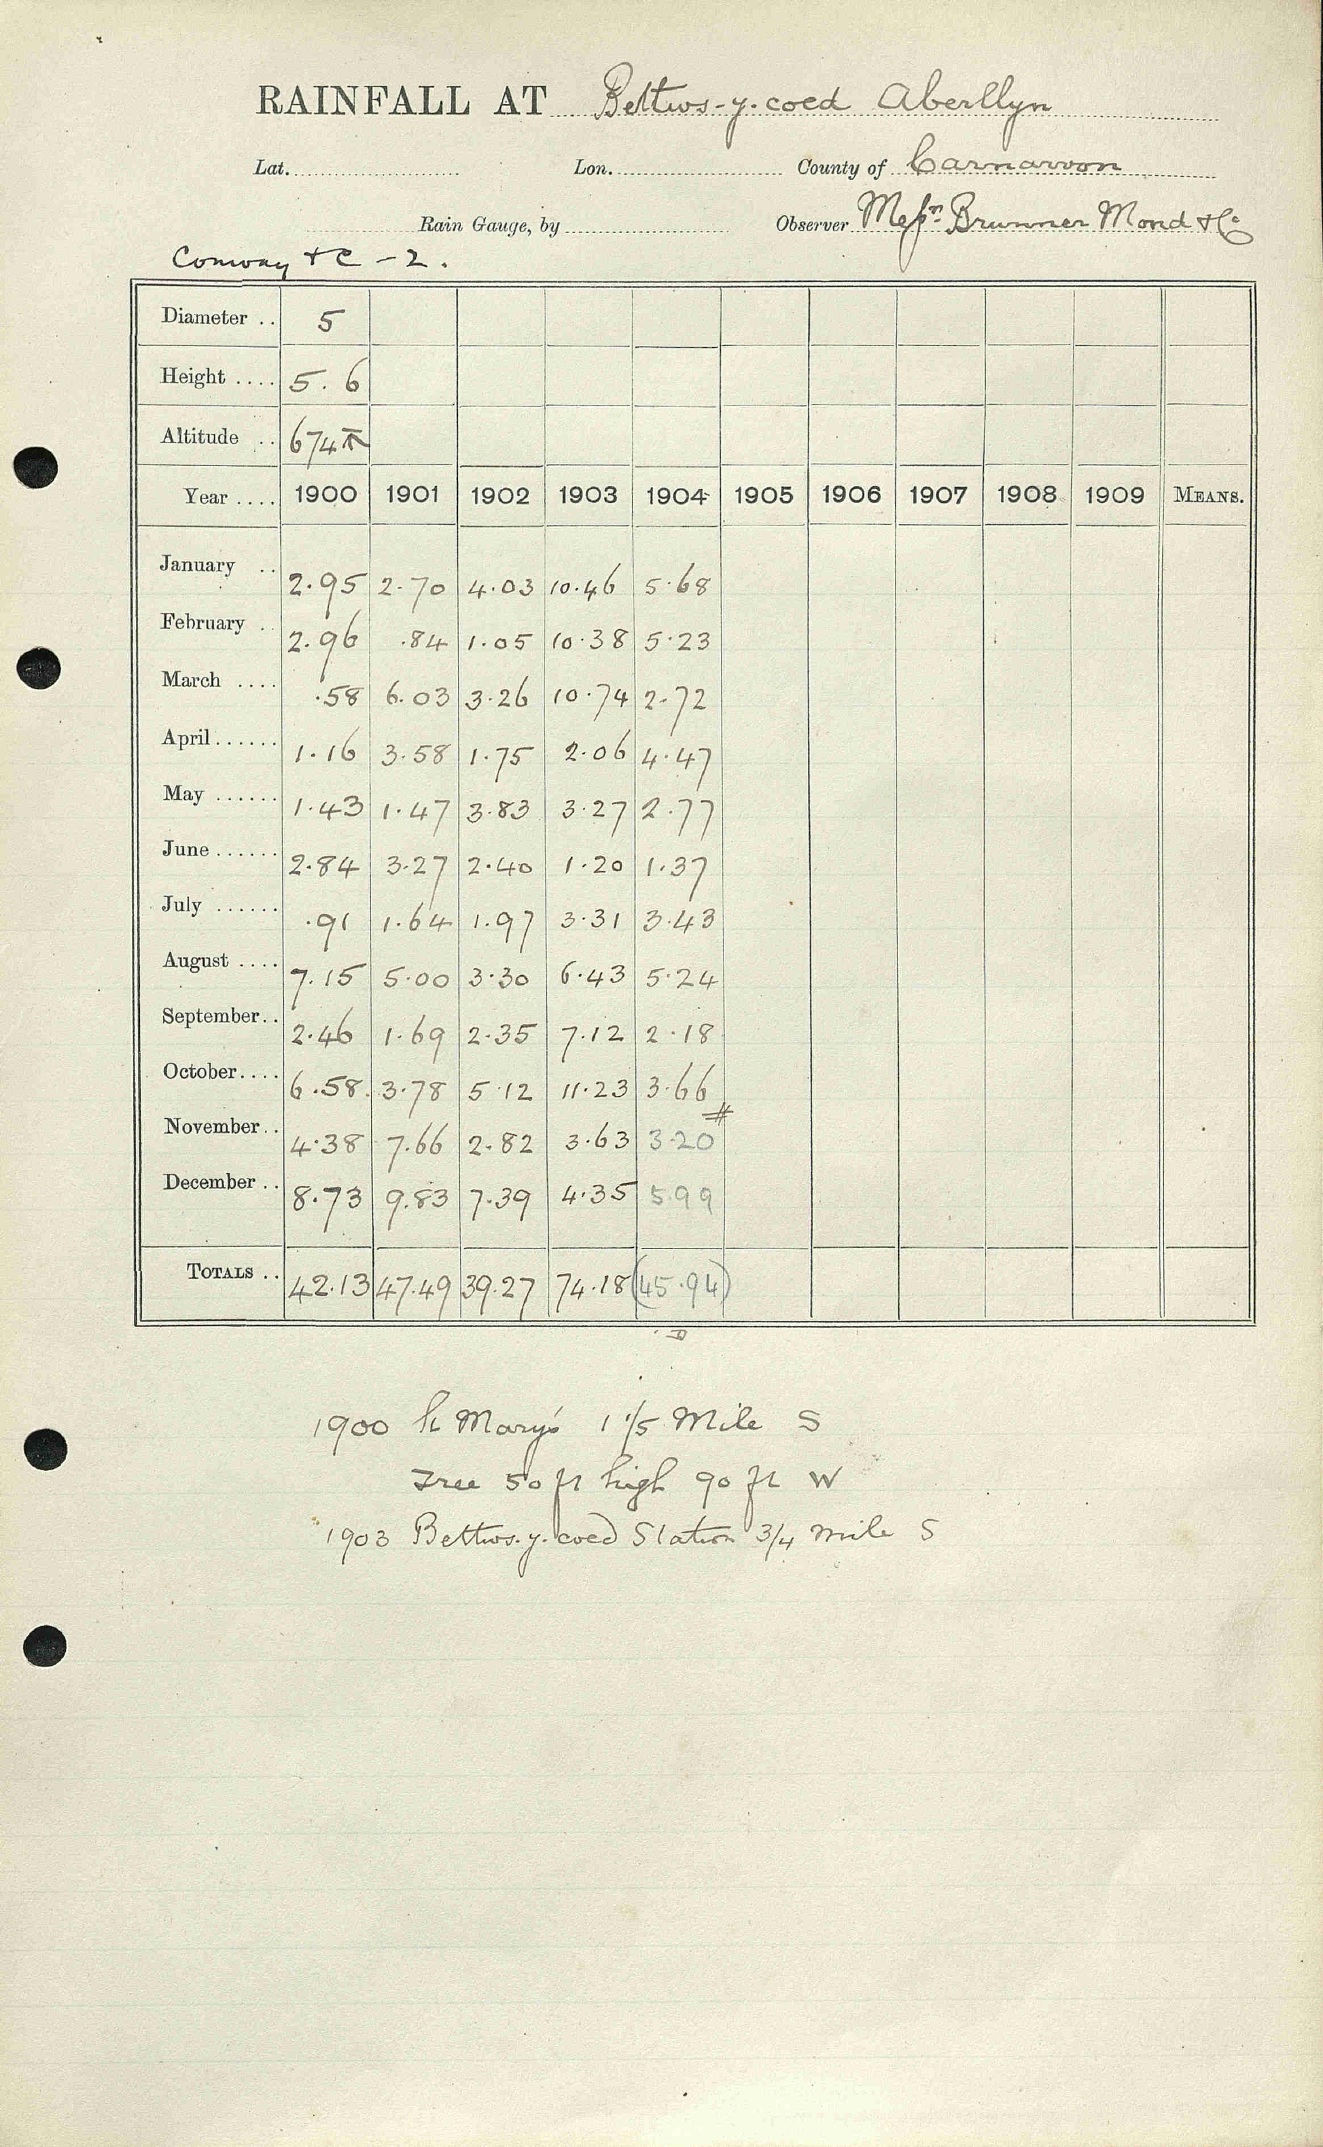 RAINFALL AT Bettws-y-coed Aberllyn
Lat. Lon. County of Carnarvon
Rain Gauge, by Observer Messrs Brunner Mond & Co
Conway & C - 2.
Diameter .. 5
Height .... 5. 6
Altitude .. 674
Year .... 1900 1901 1902 1903 1904 1905 1906 1907 1908 1909 MEANS.
January .. 2.95 2.70 4.03 10.46 5.68
February .. 2.96 .84 1.05 10.38 5.23
March .... .58 6.03 3.26 10.74 2.72
April...... 1.16 3.58 1.75 2.06 4.47
May ...... 1.43 1.47 3.83 3.27 2.77
June...... 2.84 3.27 2.40 1.20 1.37
July ...... .91 1.64 1.97 3.31 3.43
August .... 7.15 5.00 3.30 6.43 5.24
September.. 2.46 1.69 2.35 7.12 2.18
October.... 6.58 3.78 5.12 11.23 3.66
November.. 4.38 7.66 2.82 3.63 3.20 #
December .. 8.73 9.83 7.39 4.35 5.99
TOTALS .. 42.13 47.49 39.27 74.18 (45.94)
1900 St Mary's 1 1/5 Mile S
Tree 50 ft high 90 ft W
1903 Bettws-y-coed Station 3/4 mile S